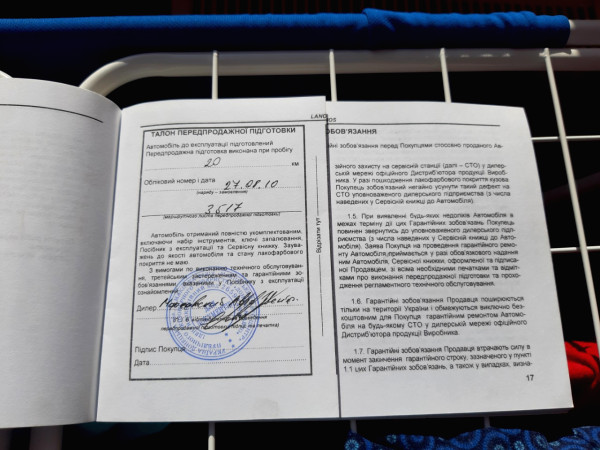 LANOS
ТАЛОН ПЕРЕДПРОДАЖНОЇ ПІДГОТОВКИ
Автомобіль до експлуатації підготовлений
Передпродажна підготовка виконана при пробігу
20 км
Обліковий номер і дата 27.08.10
3617
Автомобіль отриманий повністю укомплектованим,
включаючи набір інструментів, ключі запалювання,
Посібник з експлуатації та Сервісну книжку. Заува-
жень до якості автомобіля та стану лакофарбового
покриття не маю.
З вимогами по виконанню технічного обслуговуван-
ня,
гарантійними зо-
Посібнику з експлуатації
ознайомлений.
Дилер
Підпис Покупця
Дата
Відрізати тут
ОБОВ'ЯЗАННЯ
ійні зобов'язання перед Покупцями стосовно проданого Ав-
війного захисту на сервісній станції (далі – СТО) у дилер-
ській мережі офіційного Дистриб'ютора продукції Вироб-
ника. У разі пошкодження лакофарбового покриття кузова
Покупець зобов'язаний негайно усунути такий дефект на
СТО уповноваженого дилерського підприємства (з числа
наведених у Сервісній книжці до Автомобіля).
1.5. При виявленні будь-яких недоліків Автомобіля в
межах терміну дії цих Гарантійних зобов'язань Покупець
повинен звернутись до уповноваженого дилерського підп-
риємства (з числа наведених у Сервісній книжці до Авто-
мобіля). Заява Покупця на проведення гарантійного ремон-
ту Автомобіля приймається у разі обов'язкового надання
ним Автомобіля, Сервісної книжки, оформленої та підписа-
ної Продавцем, зі всіма необхідними печатками та відміт-
ками про виконання передпродажної підготовки та про-
ходження регламентного технічного обслуговування.
1.6. Гарантійні зобов'язання Продавця поширюються
тільки на території України і обмежуються виключно без-
коштовним для Покупця гарантійним ремонтом Автомо-
біля на будь-якому СТО у дилерській мережі офіційного
Дистриб'ютора продукції Виробника.
1.7. Гарантійні зобов'язання Продавця втрачають силу в
момент закінчення гарантійного строку, зазначеного у пункті
1.1 цих Гарантійних зобов'язань, а також у випадках, визна-
17